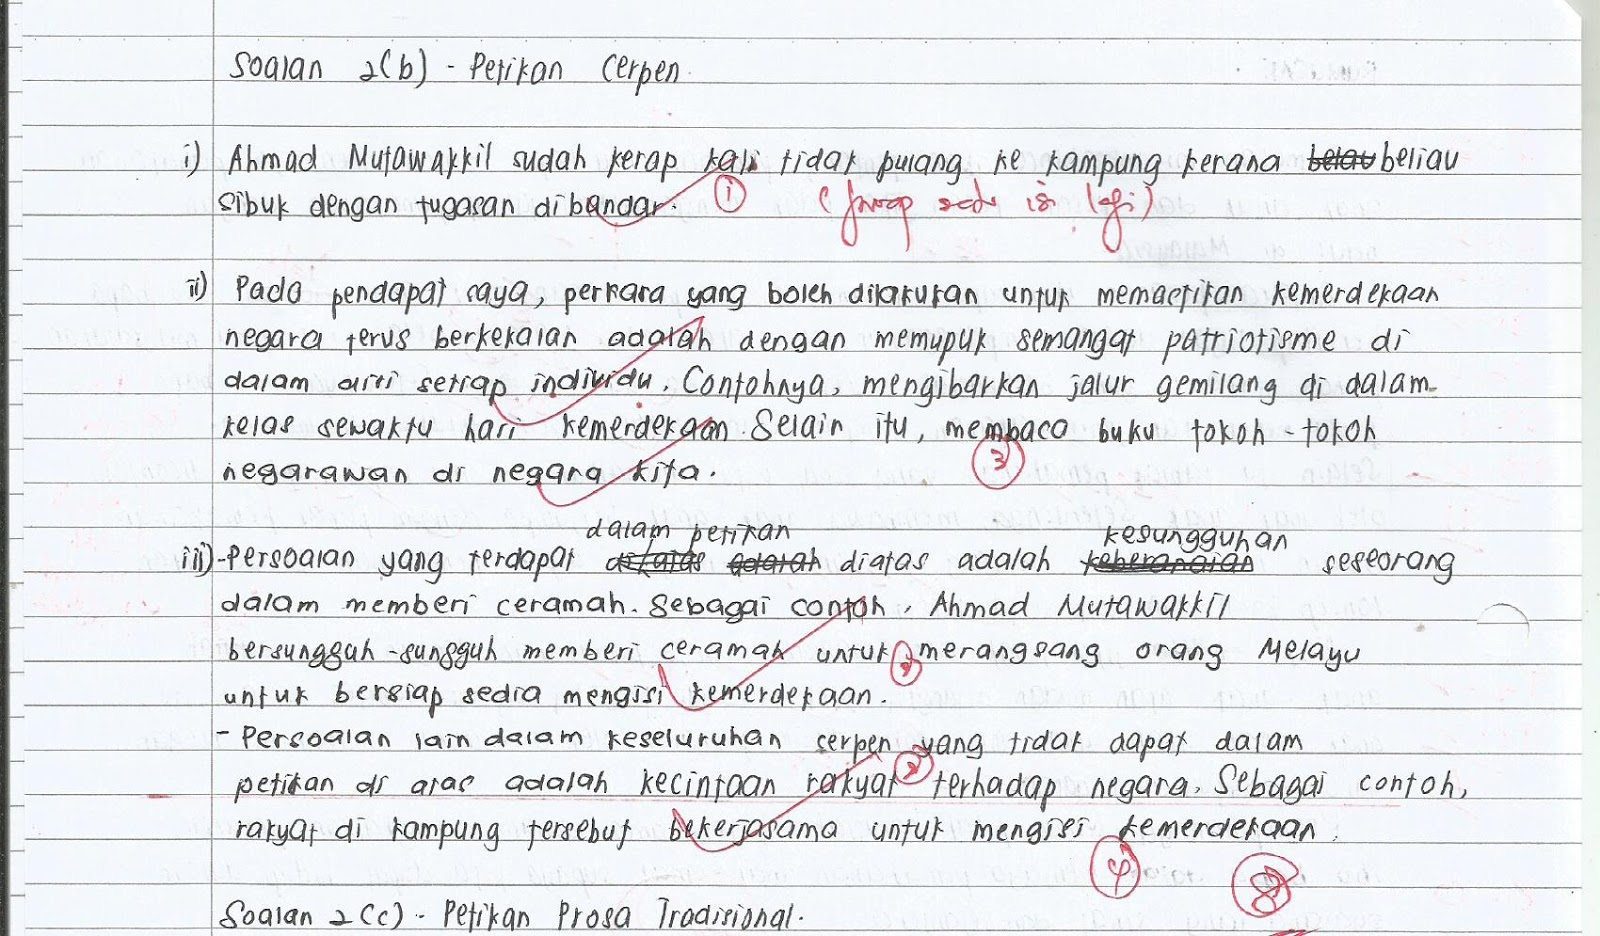 Soalan 2(b) - Petikan Cerpen.
i) Ahmad Mutawakkil sudah kerap kali tidak pulang ke kampung kerana belau beliau
sibuk dengan tugasan dibandar. 1 (Jawap satu isi lagi)
ii) Pada pendapat saya, perkara yang boleh dilakukan untuk memastikan kemerdekaan
negara terus berkekalan adalah dengan memupuk semangat patriotisme di
dalam diri setiap individu. Contohnya, mengibarkan jalur gemilang di dalam
kelas sewaktu hari kemerdekaan. Selain itu, membaca buku tokoh-tokoh
3
negarawan di negara kita.
dalam petikan kesungguhan
iii) -Persoalan yang terdapat adalah diatas adalah keberanian seseorang
dalam memberi ceramah. Sebagai contoh, Ahmad Mutawakkil
bersunggah-sungguh memberi ceramah untuk merangsang orang Melayu
untuk bersiap sedia mengisi kemerdekaan.
- Persoalan lain dalam keseluruhan serpen yang tidak dapat dalam
petikan di atas adalah kecintaan rakyat terhadap negara. Sebagai contoh,
rakyat di kampung tersebut bekerjasama untuk mengisi kemerdekaan.
4 8
Soalan 2(c) - Petikan Prosa Tradisional.